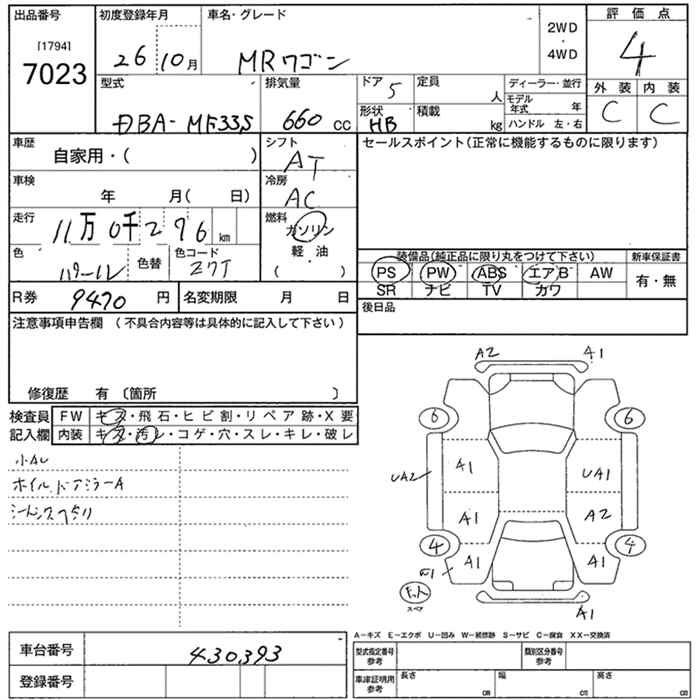 出品番号
[1794]
7023
初度登録年月
26 10月
車名・グレード
MRワゴン
2WD
・
4WD
評価点
4
外装 内装
C C
型式
DBA-MF33S
排気量
660 CC
ドア 5
定員
人
形状
HB
積載
kg
ディーラー・並行
モデル年式 年
ハンドル 左・右
車歴
自家用・( )
シフト
AT
車検
年 月( 日)
冷房
AC
走行
11万0千276km
燃料
ガソリン
軽・油
( )
色
パール
色替
色コード
Z7T
R券
9470円
名変期限 月 日
セールスポイント(正常に機能するものに限ります)
装備品(純正品に限り丸をつけて下さい)
PS PW ABS エアB AW
SR ナビ TV カワ
新車保証書
有・無
後日品
注意事項申告欄 (不具合内容等は具体的に記入して下さい)
修復歴 有 〔箇所 〕
検査員
記入欄
FW キズ・飛石・ヒビ割・リペア跡・X要
内装 キズ・汚レ・コゲ・穴・スレ・キレ・破レ
小AU
ホイル、ドアミラーA
A2 A1
6 6
A1 UA1
UA2
A1 A2
4 4
A1 A1
スペア
A1
A−キズ E−エクボ U−凹み W−補修跡 S−サビ C−腐食 XX−交換済
車台番号
430393
登録番号
型式指定番号
参考
類別区分番号
参考
車庫証明用
参考
長さ cm
幅 cm
高さ cm